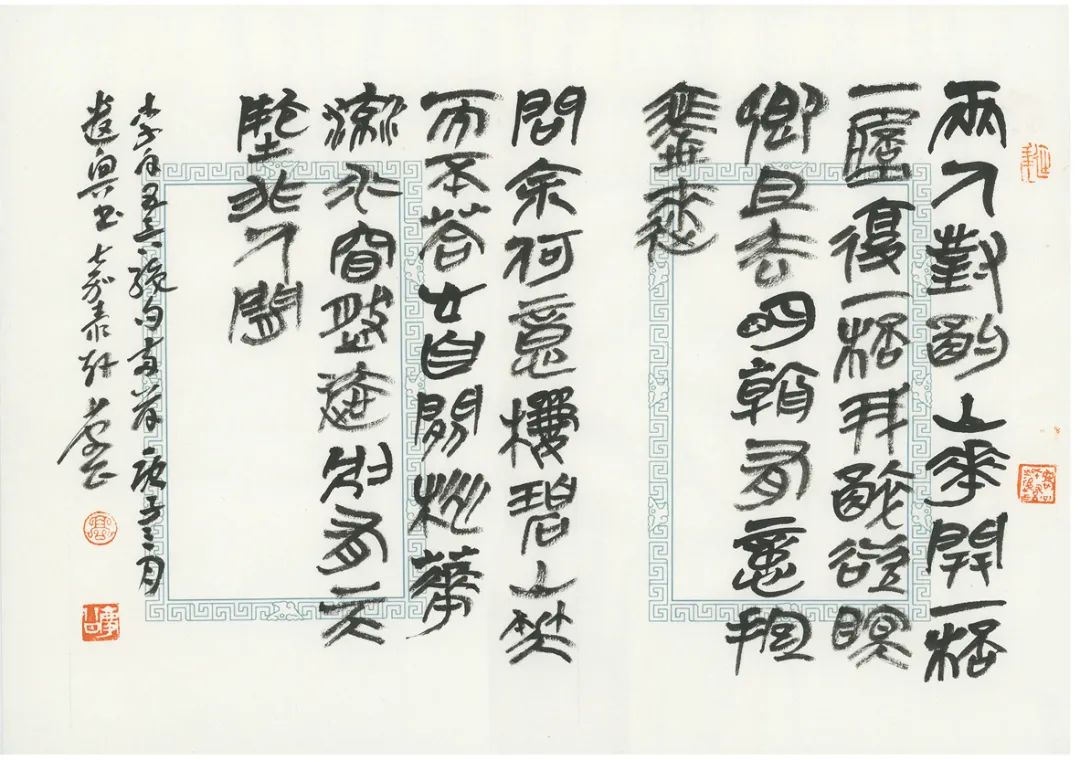 兩人對酌山花開一杯
一杯復一杯我醉欲眠
卿且去明朝有意抱
琴來
問余何意棲碧山笑
而不答心自閑桃花
流水窅然去別有天
地非人間
李白絕句兩首 庚子三月
遣興書於嘉泰軒